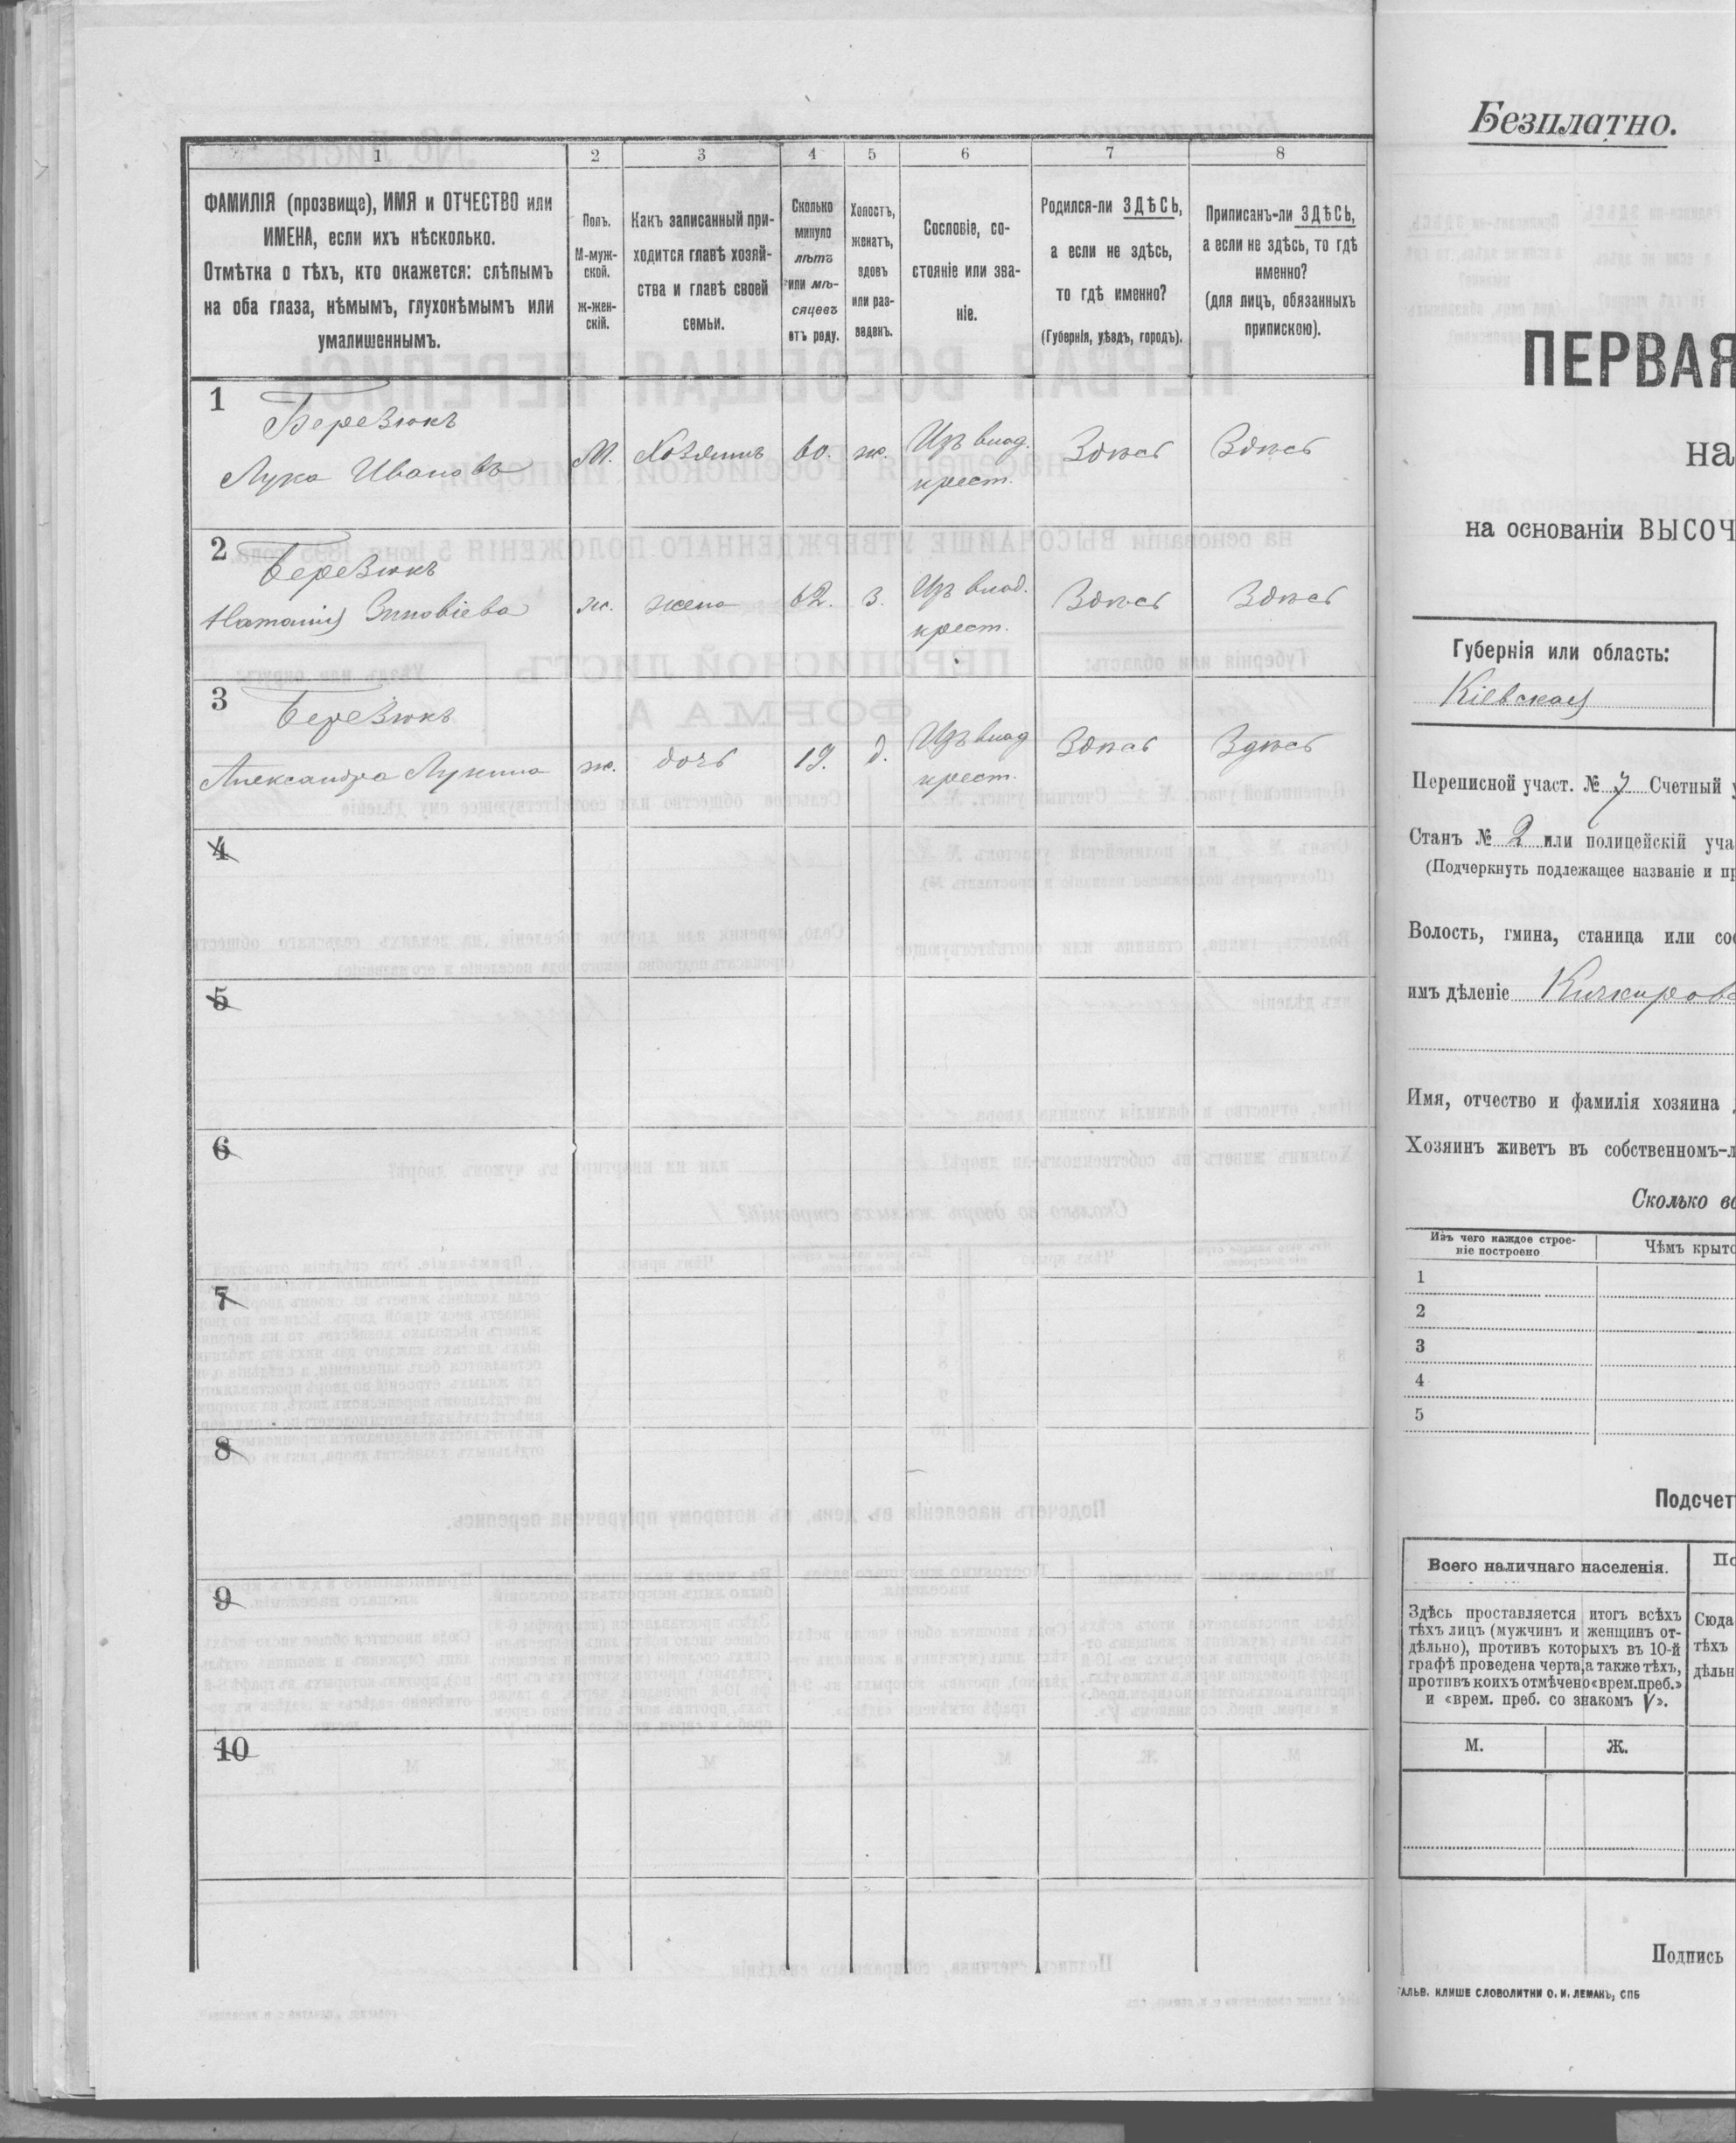 1
2
3
4
5
6
7
8
ФАМИЛІЯ (прозвище), ИМЯ и ОТЧЕСТВО или
ИМЕНА, если ихъ нѣсколько.
Отмѣтка о тѣхъ, кто окажется: слѣпымъ
на оба глаза, нѣмымъ, глухонѣмымъ или
умалишеннымъ.
Полъ.
М-муж-
ской.
ж-жен-
скій.
Какъ записанный при-
ходится главѣ хозяй-
ства и главѣ своей
семьи.
Сколько
минуло
лѣтъ
или мѣ-
сяцевъ
отъ роду.
Холостъ,
женатъ,
вдовъ
или раз-
веденъ.
Сословіе, со-
стояніе или зва-
ніе.
Родился-ли ЗДѢСЬ,
а если не здѣсь,
то гдѣ именно?
(Губернія, уѣздъ, городъ).
Приписанъ-ли ЗДѢСЬ,
а если не здѣсь, то гдѣ
именно?
(для лицъ, обязанныхъ
припискою).
1
Березюкъ
Лука Ивановъ
М.
Хозяинъ
60.
ж.
Изъ влад.
крест.
Здѣсь
Здѣсь
2
Березюкъ
Наталия Зиновіева
ж.
жена
62.
з.
Изъ влад.
крест.
Здѣсь
Здѣсь
3
Березюкъ
Александра Лукина
ж.
дочь
19.
д.
Изъ влад
крест.
Здѣсь
Здѣсь
4
5
6
7
8
9
10
Безплатно.
ПЕРВАЯ
на
на основаніи ВЫСОЧ
Губернія или область:
Кіевская
Переписной участ. № 7 Счетный у
Станъ № 2 или полицейскій уча
(Подчеркнуть подлежащее названіе и пр
Волость, гмина, станица или соо
имъ дѣленіе Кичкиров
Имя, отчество и фамилія хозяина
Хозяинъ живетъ въ собственномъ-л
Сколько во
Изъ чего каждое строе-
ніе построено
Чѣмъ крыто
1
2
3
4
5
Подсчет
Всего наличнаго населенія.
По
Здѣсь проставляется итогъ всѣхъ
тѣхъ лицъ (мужчинъ и женщинъ от-
дѣльно), противъ которыхъ въ 10-й
графѣ проведена черта, а также тѣхъ,
противъ коихъ отмѣчено «врем. преб.»
и «врем. преб. со знакомъ V».
Сюда
тѣхъ
дѣльн
М.
Ж.
Подпись
ГАЛЬВ. КЛИШЕ СЛОВОЛИТНИ О. И. ЛЕМАНЪ, СПБ